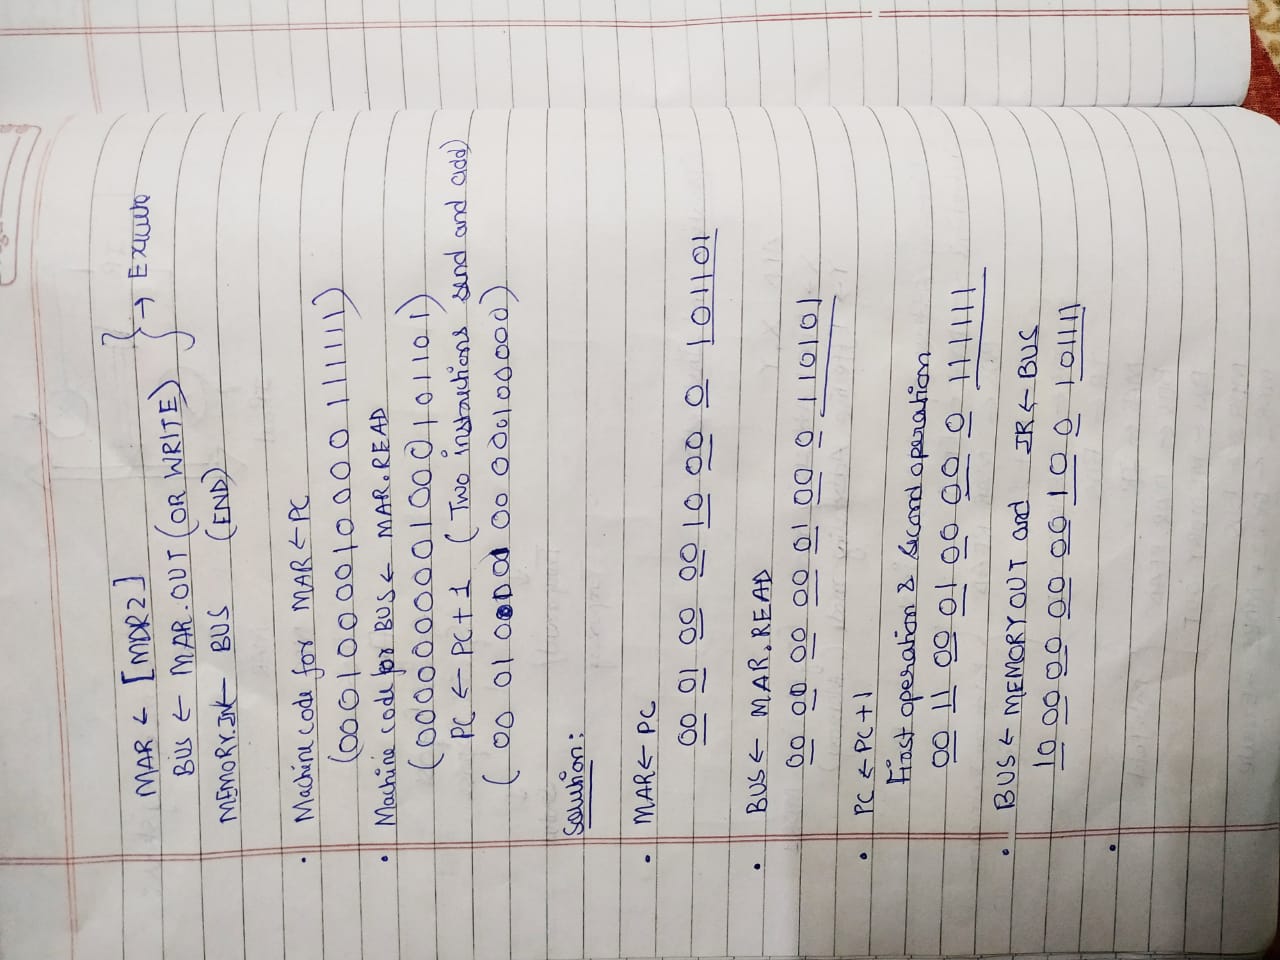 MAR ← [MDR2]
BUS ← MAR.OUT (OR WRITE) } → Execute
MEMORY.IN ← BUS (END)
• Machine code for MAR ← PC
(0001000001000011111)
• Machine code for BUS ← MAR.READ
(0000000001000101101)
PC ← PC + 1 (Two instructions send and add)
(00 01 00 00 00 000100000)
Solution:
• MAR ← PC
00 01 00 00 10 00 0 101101
• BUS ← MAR.READ
00 00 00 00 01 00 0 110101
• PC ← PC + 1
First operation & Second operation
00 11 00 01 00 00 0 111111
• BUS ← MEMORY OUT and IR ← BUS
10 00 00 00 00 10 0 10111
•